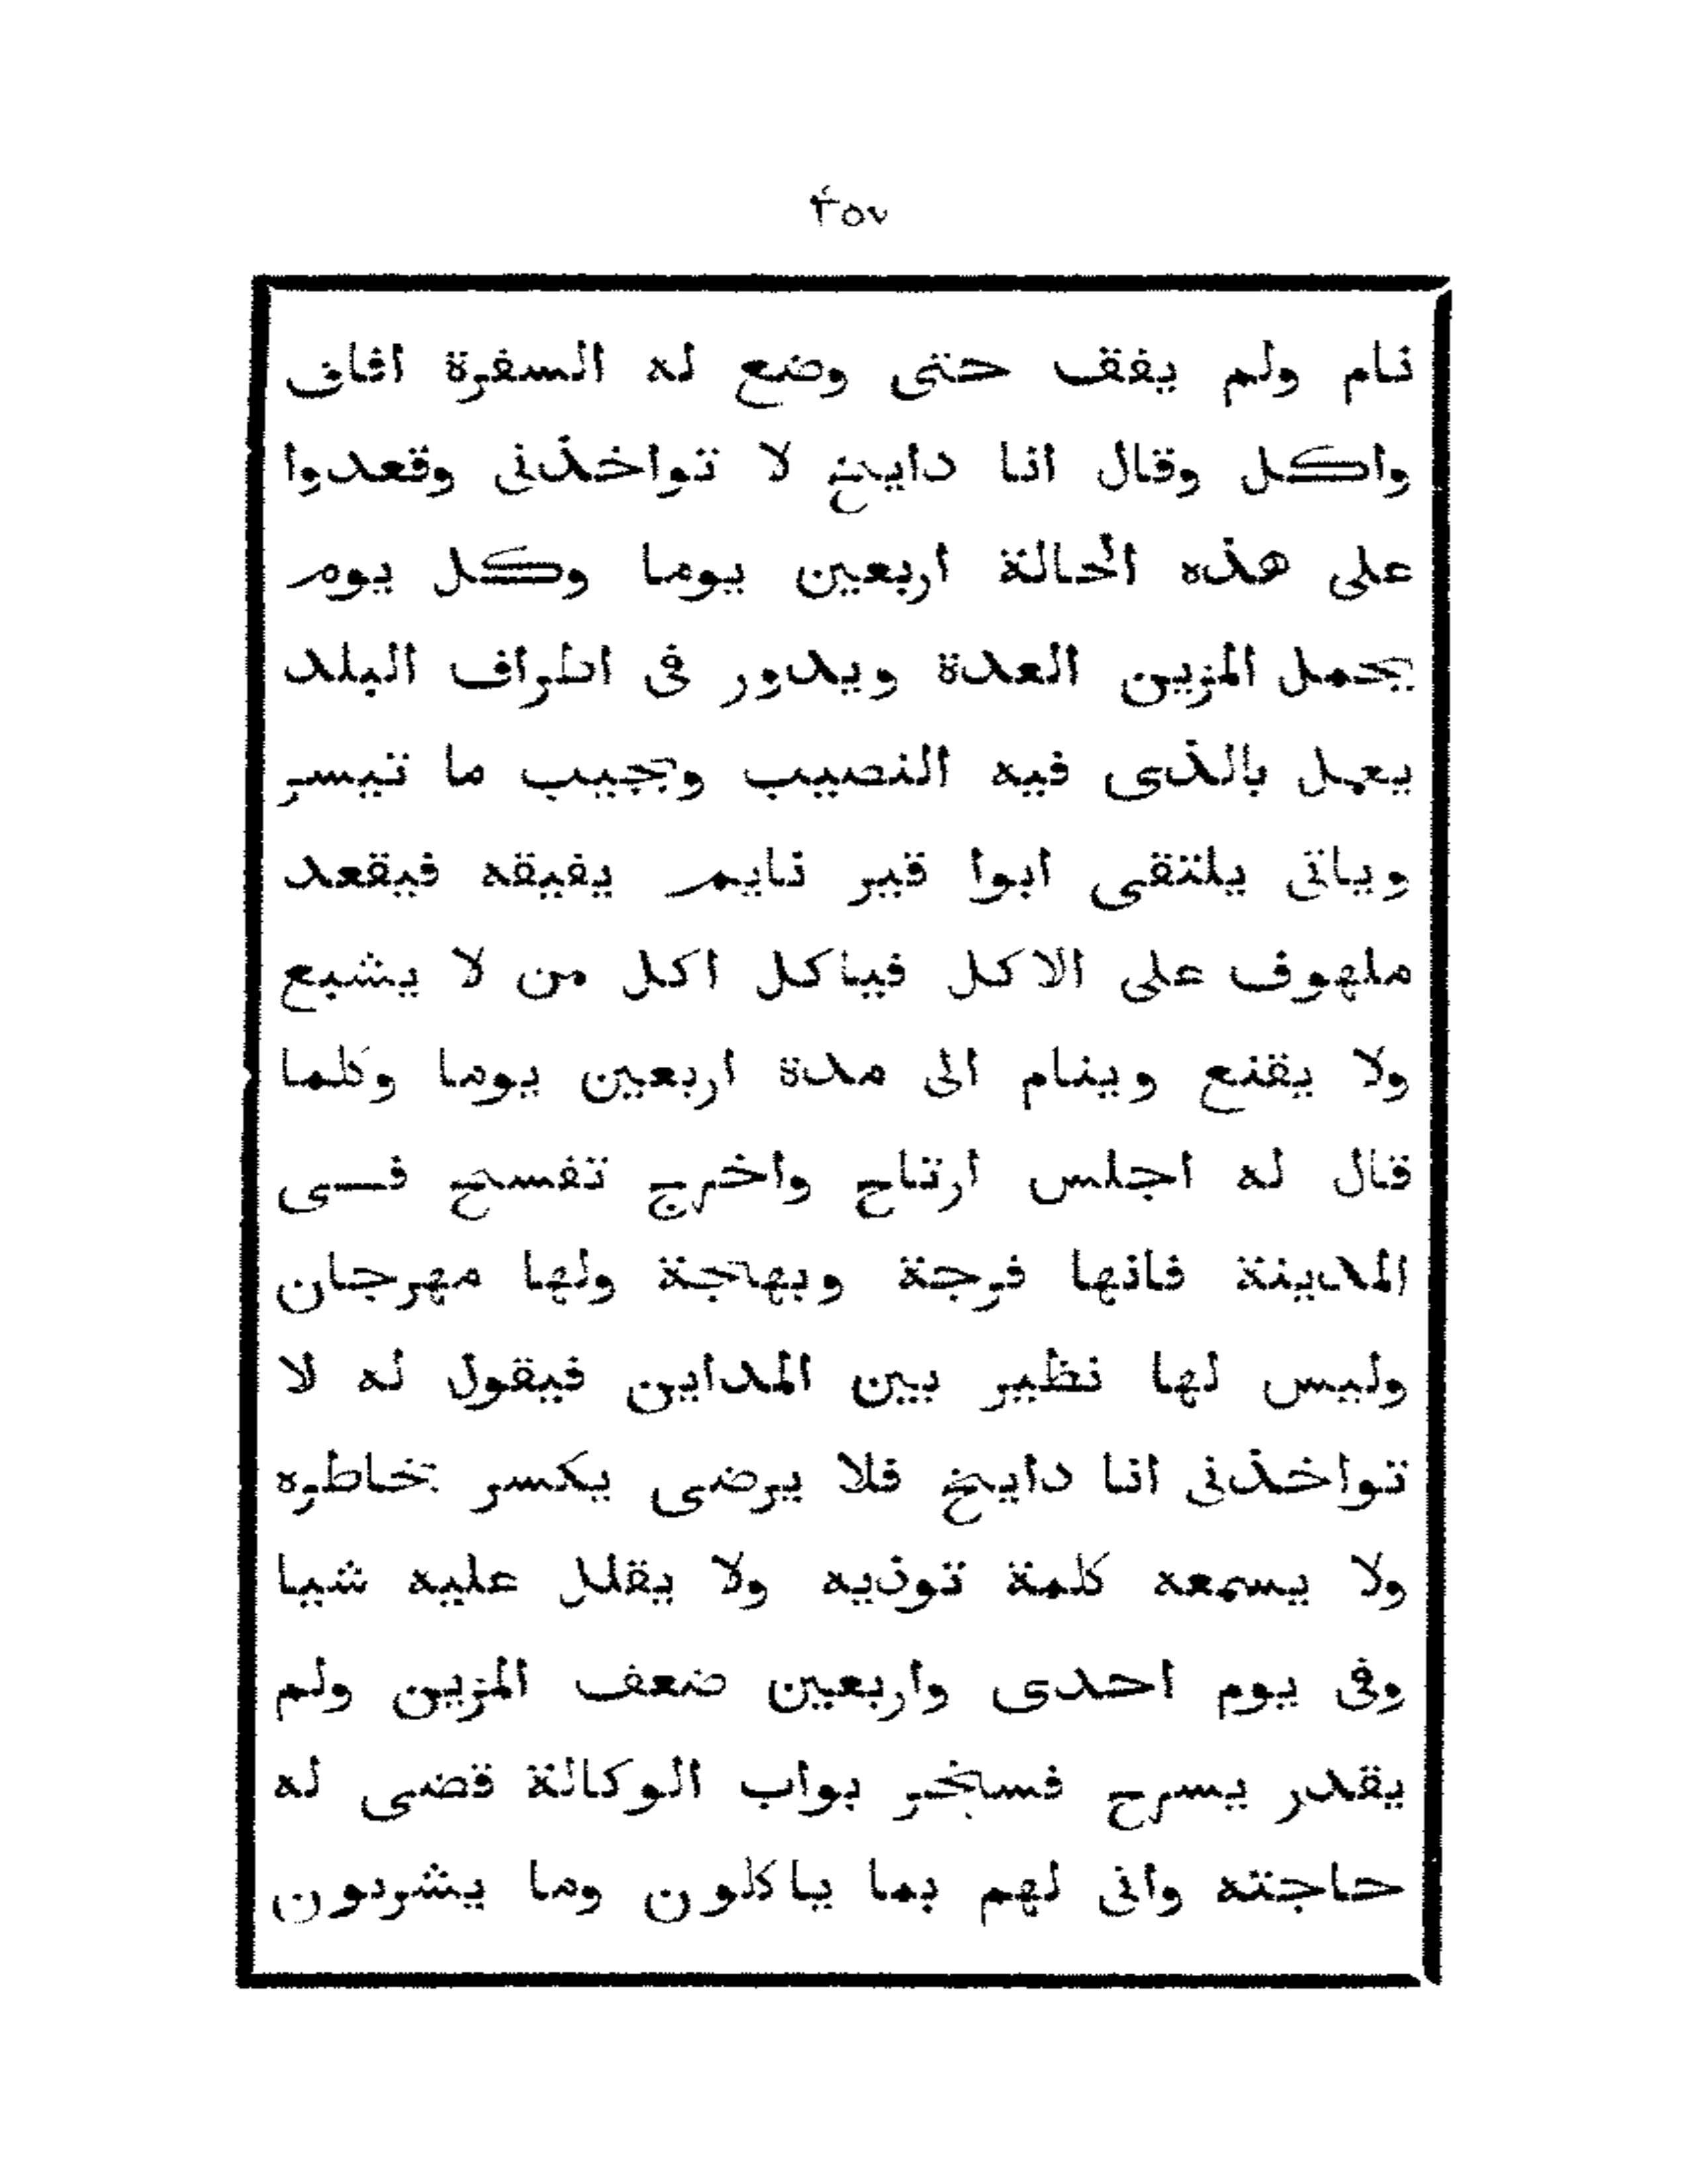 ٤٥٧
نام ولم يفق حتى وضع له السفرة افاق
واكل وقال انا دايخ لا تواخذنى وقعدوا
على هذه الحالة اربعين يوما وكل يوم
يحمل المزين العدة ويدور فى اطراف البلد
يعمل بالذى فيه النصيب ويجيب ما تيسر
وياتى يلتقى ابوا قير نايم يفيقه فيقعد
ملهوف على الاكل فياكل اكل من لا يشبع
ولا يقنع وينام الى مدة اربعين يوما وكلما
قال له اجلس ارتاح واخرج تفسح فى
المدينة فانها فرجة وبهجة ولها مهرجان
وليس لها نظير بين المداين فيقول له لا
تواخذنى انا دايخ فلا يرضى يكسر بخاطره
ولا يسمعه كلمة توذيه ولا يقلل عليه شيا
وفى يوم احدى واربعين ضعف المزين ولم
يقدر يسرح فسخر بواب الوكالة قضى له
حاجته واتى لهم بما ياكلون وما يشربون